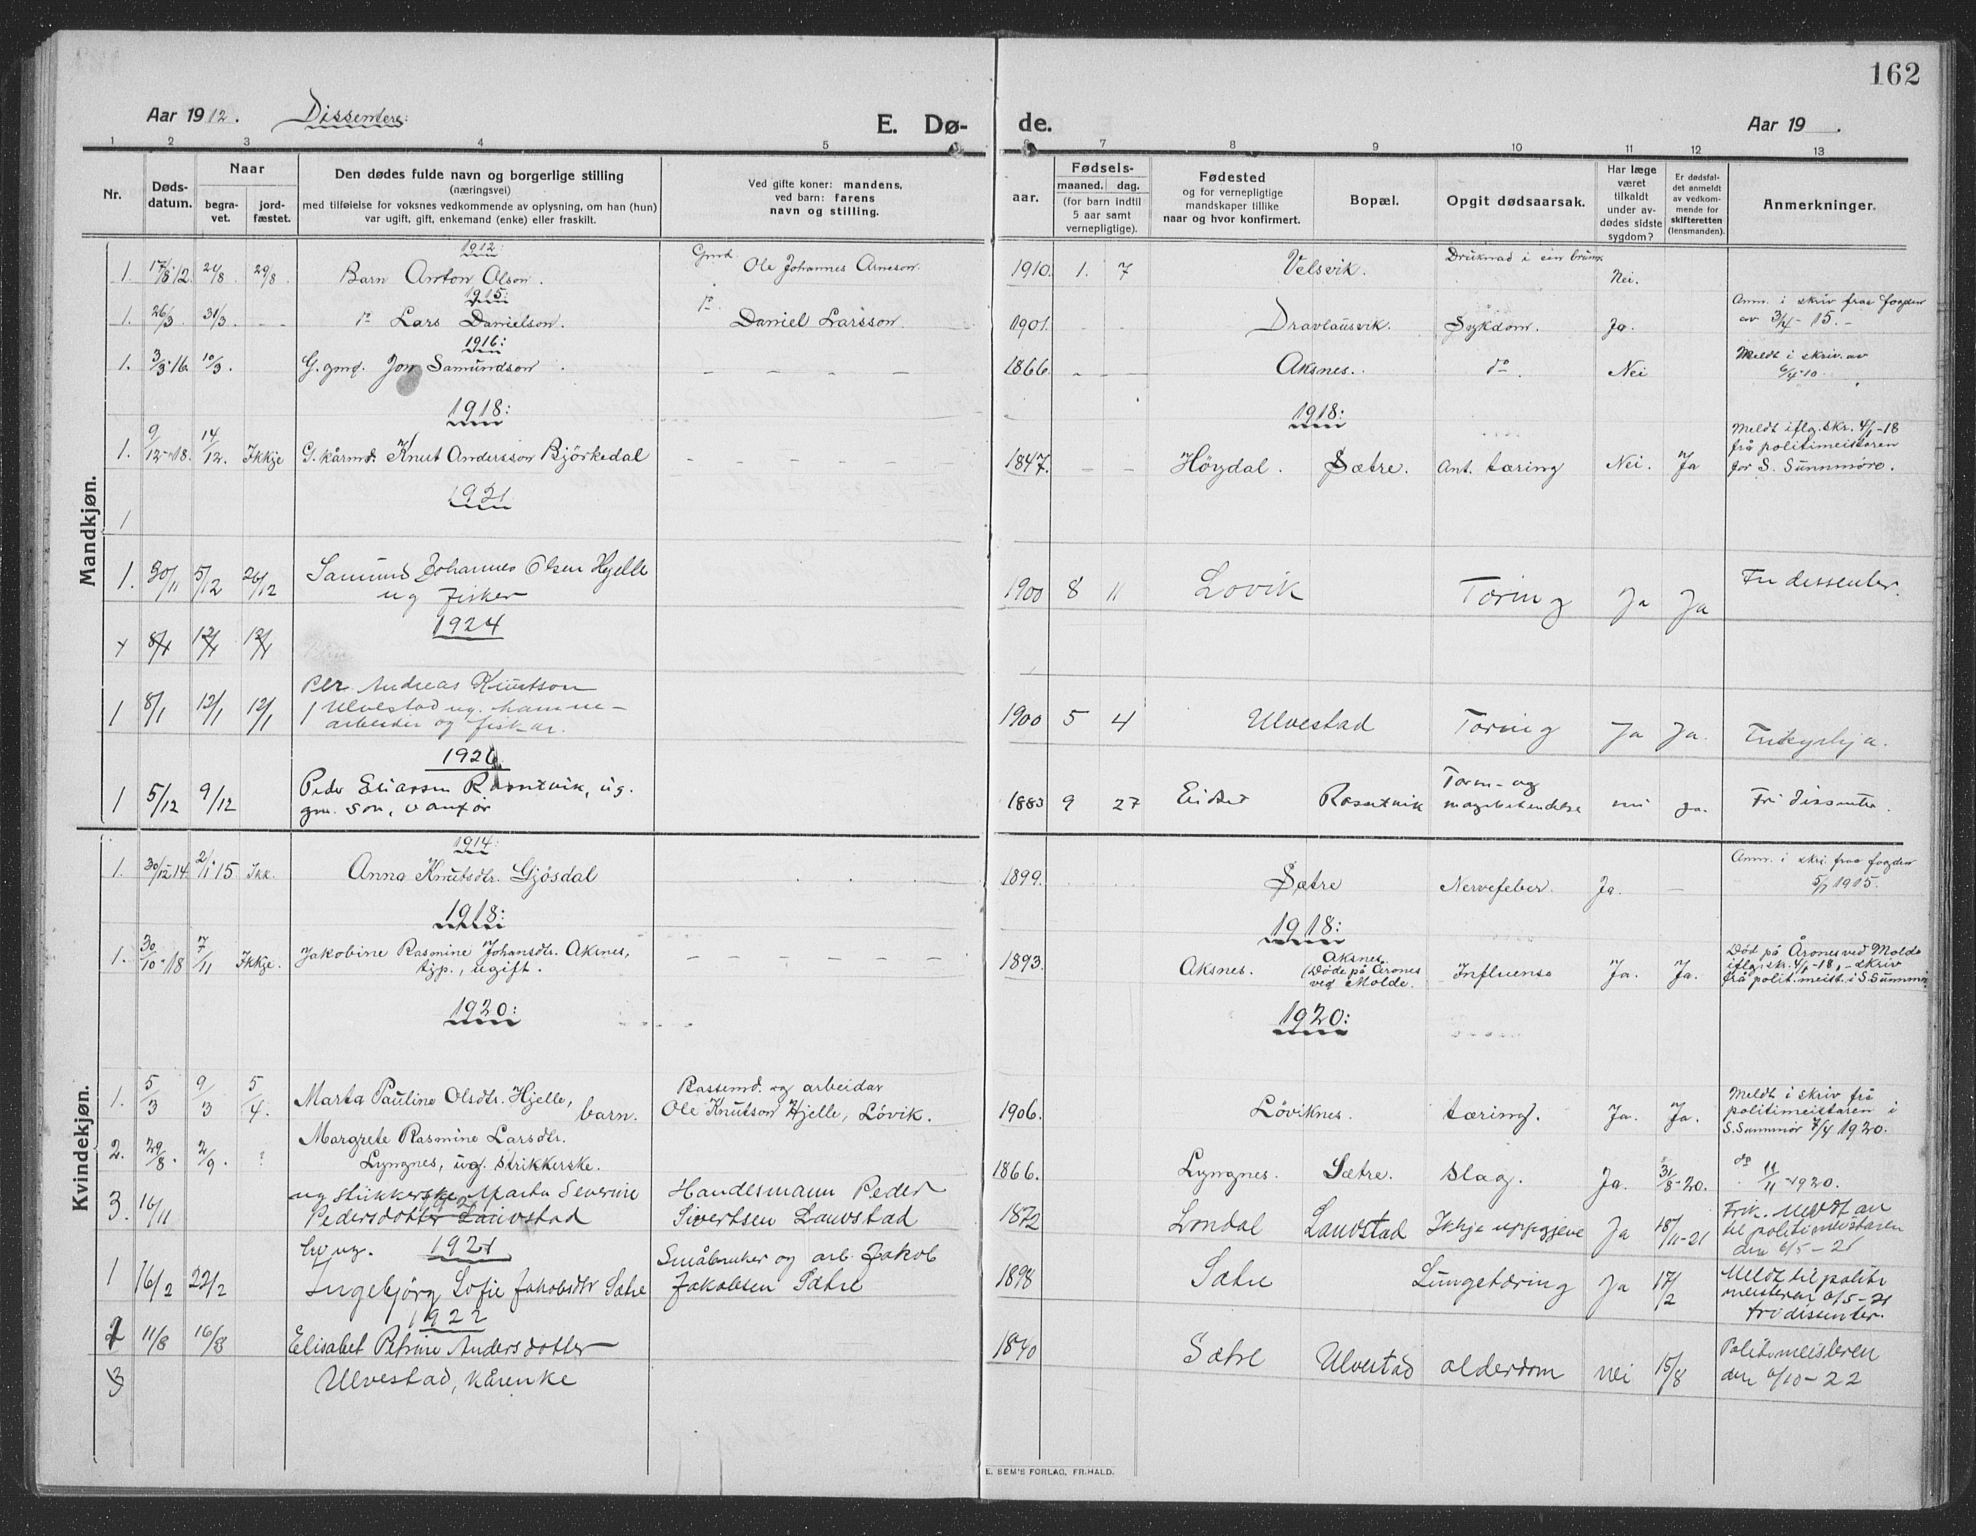 162
Aar 1912. Dissentere:
E. Dø-
de.
Aar 19 .
1 2 3 4 5 6 7 8 9 10 11 12 13
Nr.
Døds-
datum.
Naar
begra-
vet.
jord-
fæstet.
Den dødes fulde navn og borgerlige stilling
(næringsvei)
med tilføielse for voksnes vedkommende av oplysning, om han (hun)
var ugift, gift, enkemand (enke) eller fraskilt.
Ved gifte koner: mandens,
ved barn: farens
navn og stilling.
aar.
Fødsels-
maaned. dag.
(for barn indtil
5 aar samt
vernepligtige).
Fødested
og for vernepligtige
mandskaper tillike
naar og hvor konfirmert.
Bopæl.
Opgit dødsaarsak.
Har læge
været
tilkaldt
under av-
dødes sidste
sygdom?
Er dødsfal-
det anmeldt
av vedkom-
mende for
skifteretten
(lensmanden).
Anmerkninger.
Mandkjøn.
1912:
1. 17/8 12 24/8 29/8 Barn Anton Olson. Gmd. Ole Johannes Arneson. 1910. 1. 7 Velsvik. Druknad i ein brunn Nei.
1915:
1. 26/3 31/3 - - do Lars Danielson. do Daniel Larsson. 1901. - - Dravlausvik. Sykdom. Ja. Anm. i skriv fraa fogden
av 3/4 - 15. -
1916:
1. 3/3-16. 10/3. G. gmd. Jon Samundson. - - - - - 1866. - - Aksnes. do. Nei Meldt i skriv. av
6/4-10.
1918: 1918:
1. 9/12-18. 14/12. Ikkje G. kårmd. Knut Andersson Bjørkedal 1847. - - Høydal. Sætre. Ant. tæring Nei. Ja Meldt iflg. skr. 4/1-18
frå politimeistaren
for S. Sunnmøre.
1921
1
1. 30/11 5/12 26/12 Samund Johannes Olsen Hjelle
ug fisker 1900 8 11 Lovik Tæring Ja Ja Fri dissenter.
1924
+ 8/1 12/1 12/1
1 8/1 12/1 12/1 Per Andreas Knutson
Ulvestad ug. hamne-
arbeider og fiskar. 1900 5 4 Ulvestad Tæring Ja Ja. Frikyrkja.
1926
1 5/12 9/12 Peder Eliassen Rosntvik, ug.
gm. son, vanfør 1883 9 27 Eidset Rosntvik Tarm- og
magebetendelse nei ja. Fri dissenter.
Kvindekjøn.
1914:
1. 30/12 14. 2/1 15 Ikk. Anna Knutsdtr. Gjøsdal 1899. Sætre Nervefeber. Ja. - Anm. i skri. fraa fogden
5/1 1915.
1918: 1918:
1. 30/10-18 7/11 Ikkje. Jakobine Rasmine Johansdtr. Aksnes,
tjp., ugift. - - - - - - 1893. Aksnes. Aksnes.
(Døde på Årones
ved Molde. Influensa Ja. Ja. Død på Årones ved Molde
iflg. skr. 4/1-18, - skriv
frå polit.meist. i S. Sunnmør
1920: 1920:
1. 5/3 9/3 5/4. Marta Pauline Olsdtr. Hjelle,
barn. Bassemd. og arbeidar
Ole Knutson Hjelle, Løvik. 1906. Løviknes. tæring. Ja. Ja. Meldt i skriv frå
politimeistaren i
S. Sunnmør 7/4 1920.
2. 29/8. 2/9. ? Margrete Rasmine Larsdtr.
Lyngnes, ug. strikkerske. 1866. Lyngnes. Sætre. slag. Ja. 31/8-20. do 11/11 - 1920.
3. 16/11 ug strikkerske Marta Severine
Pedersdotter Lauvstad Handelsmann Peder
Sivertsen Lauvstad 1872 Londal Lauvstad Ikkje uppgjeve Ja 18/11-21 Frik. meldt av
til politimeistaren
den 6/5 - 21
1921
1 16/2 22/2 Ingebjørg Sofie Jakobsdtr Sætre Småbruker og arb. Jakob
Jakobsen Sætre 1898 Sætre Lungetæring Ja 17/2 Meldt til politi
meisteren 6/5-21
fridissenter.
1922
1 11/8 16/8 Elisabet Petrine Andersdotter
Ulvestad, kårenke 1840 Sætre Ulvestad alderdom nei 15/8 Politimeisteren
den 6/10 - 22
3
E. SEM'S FORLAG, FR.HALD.